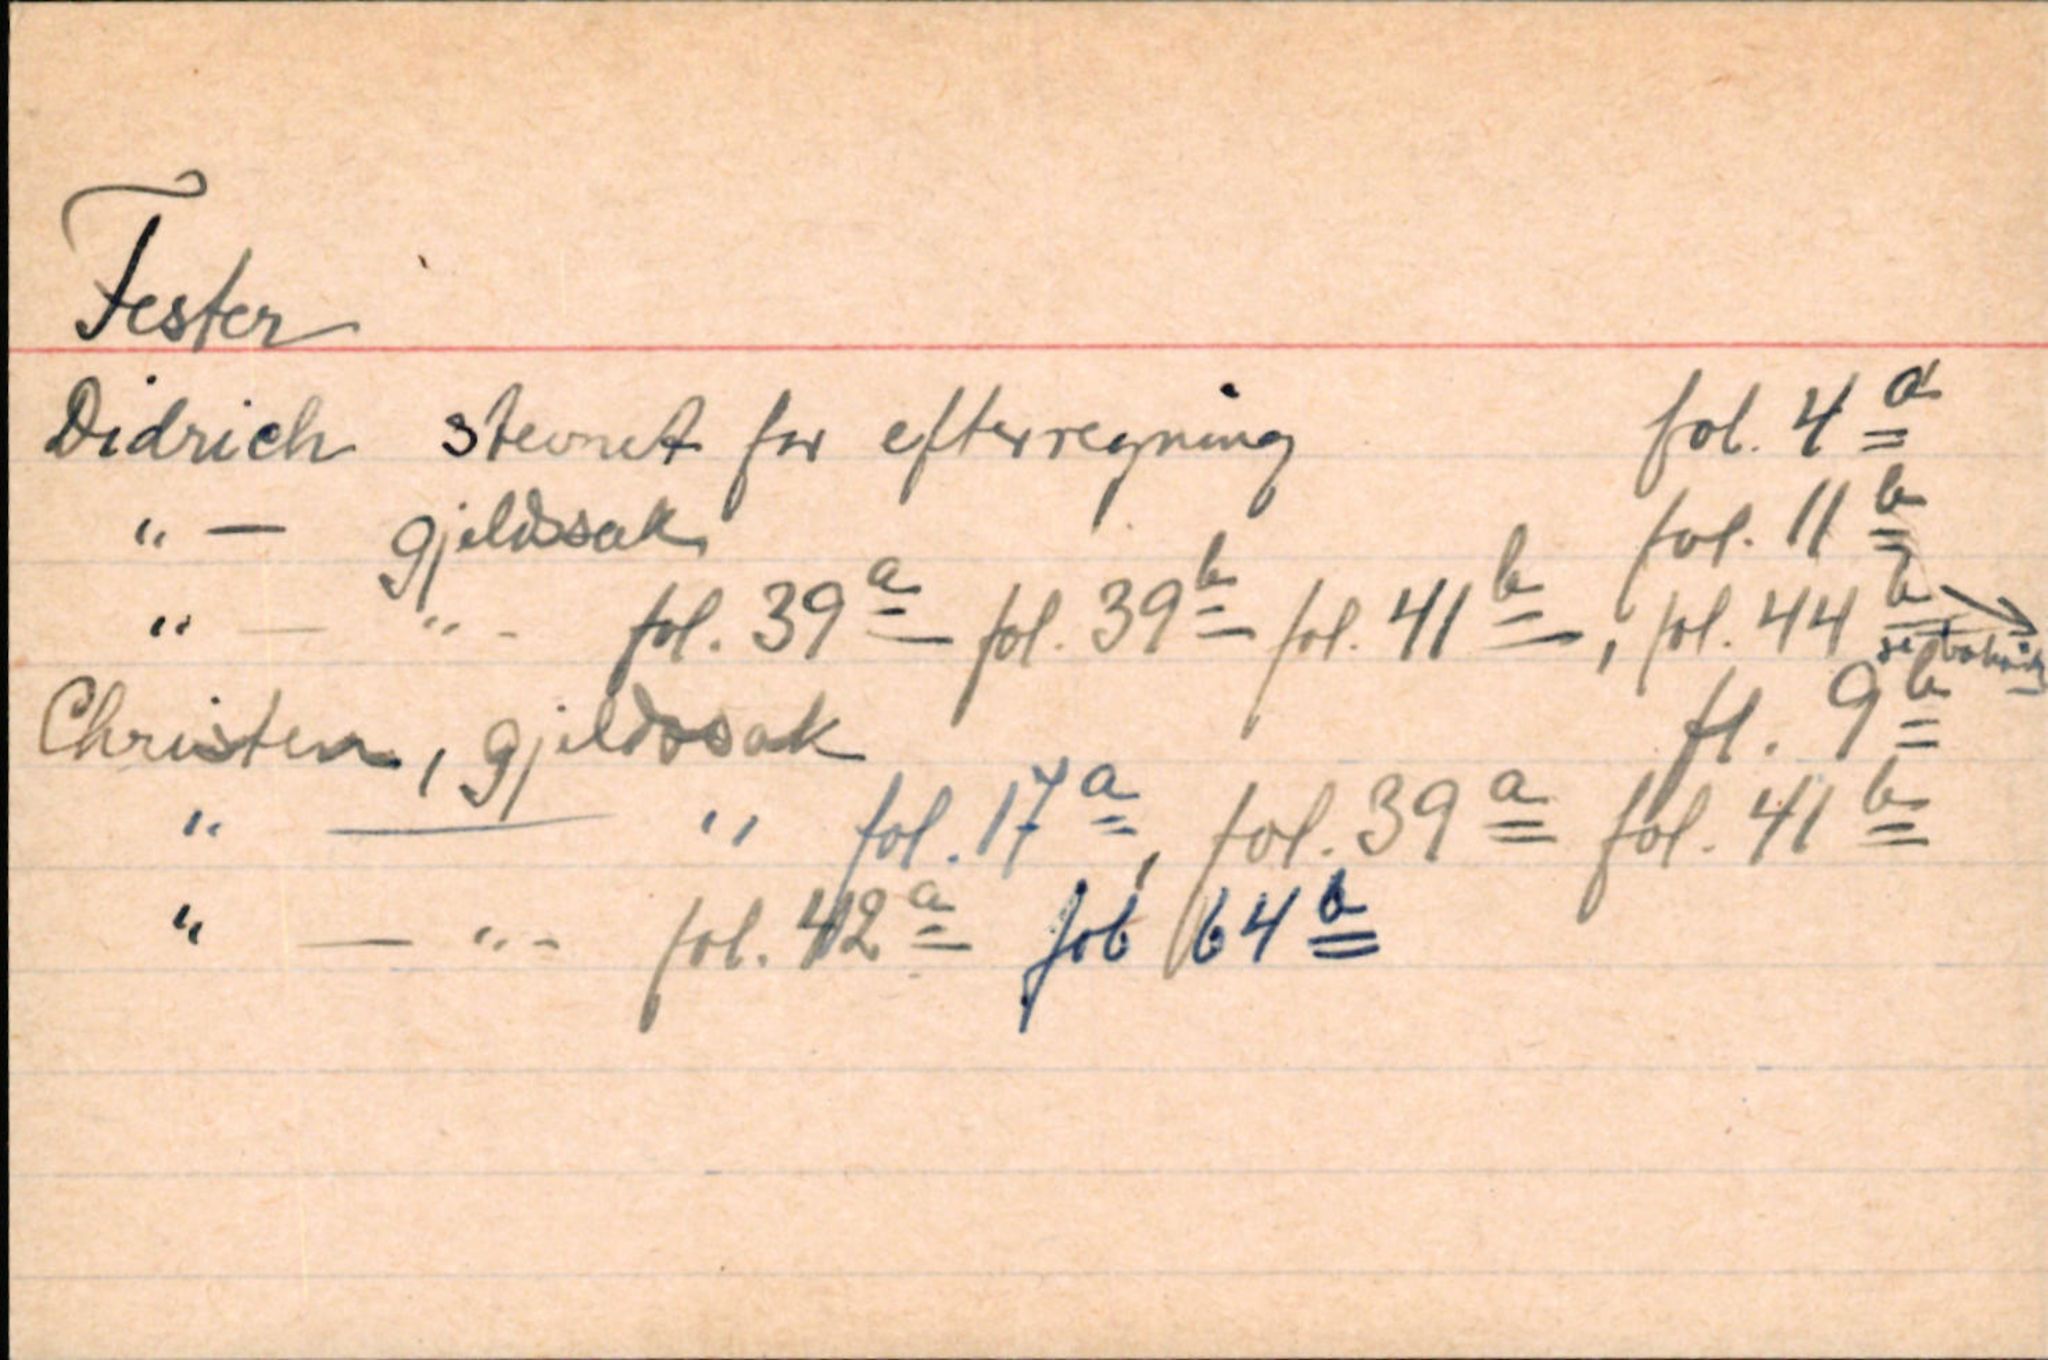 Fester
Didrich stevnet for efterregning fol. 4 a
" — gjeldssak fol. 11 b
" — " - fol. 39 a fol. 39 b fol. 41 b, fol. 44 b
se baksid
Christen, gjeldssak fl. 9 b
" — " fol. 17 a, fol. 39 a fol. 41 b
" — " - fol. 42 a fol 64 b